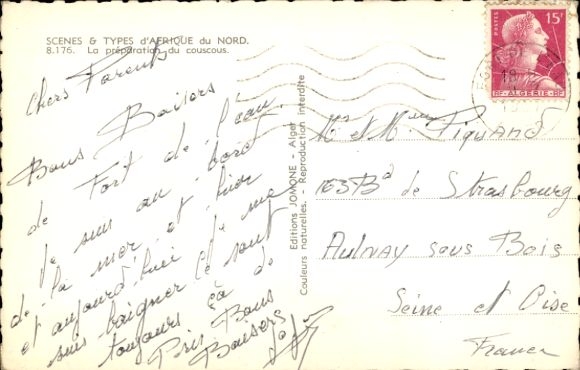 SCENES & TYPES d'AFRIQUE du NORD.
8.176. La préparation du couscous.
Chers Parents
Bons Baisers
de Fort de l'eau.
Je suis au bord
de la mer et hier
et aujourd'hui je me
suis baigner ce sont
toujours ça de
Pris Bons
Baisers
Editions JOMONE - Alger
Couleurs naturelles. - Reproduction interdite
POSTES 15F
RF - ALGERIE - RF
Mr et Mme Piquand
163 Bd de Strasbourg
Aulnay sous Bois
Seine et Oise
France